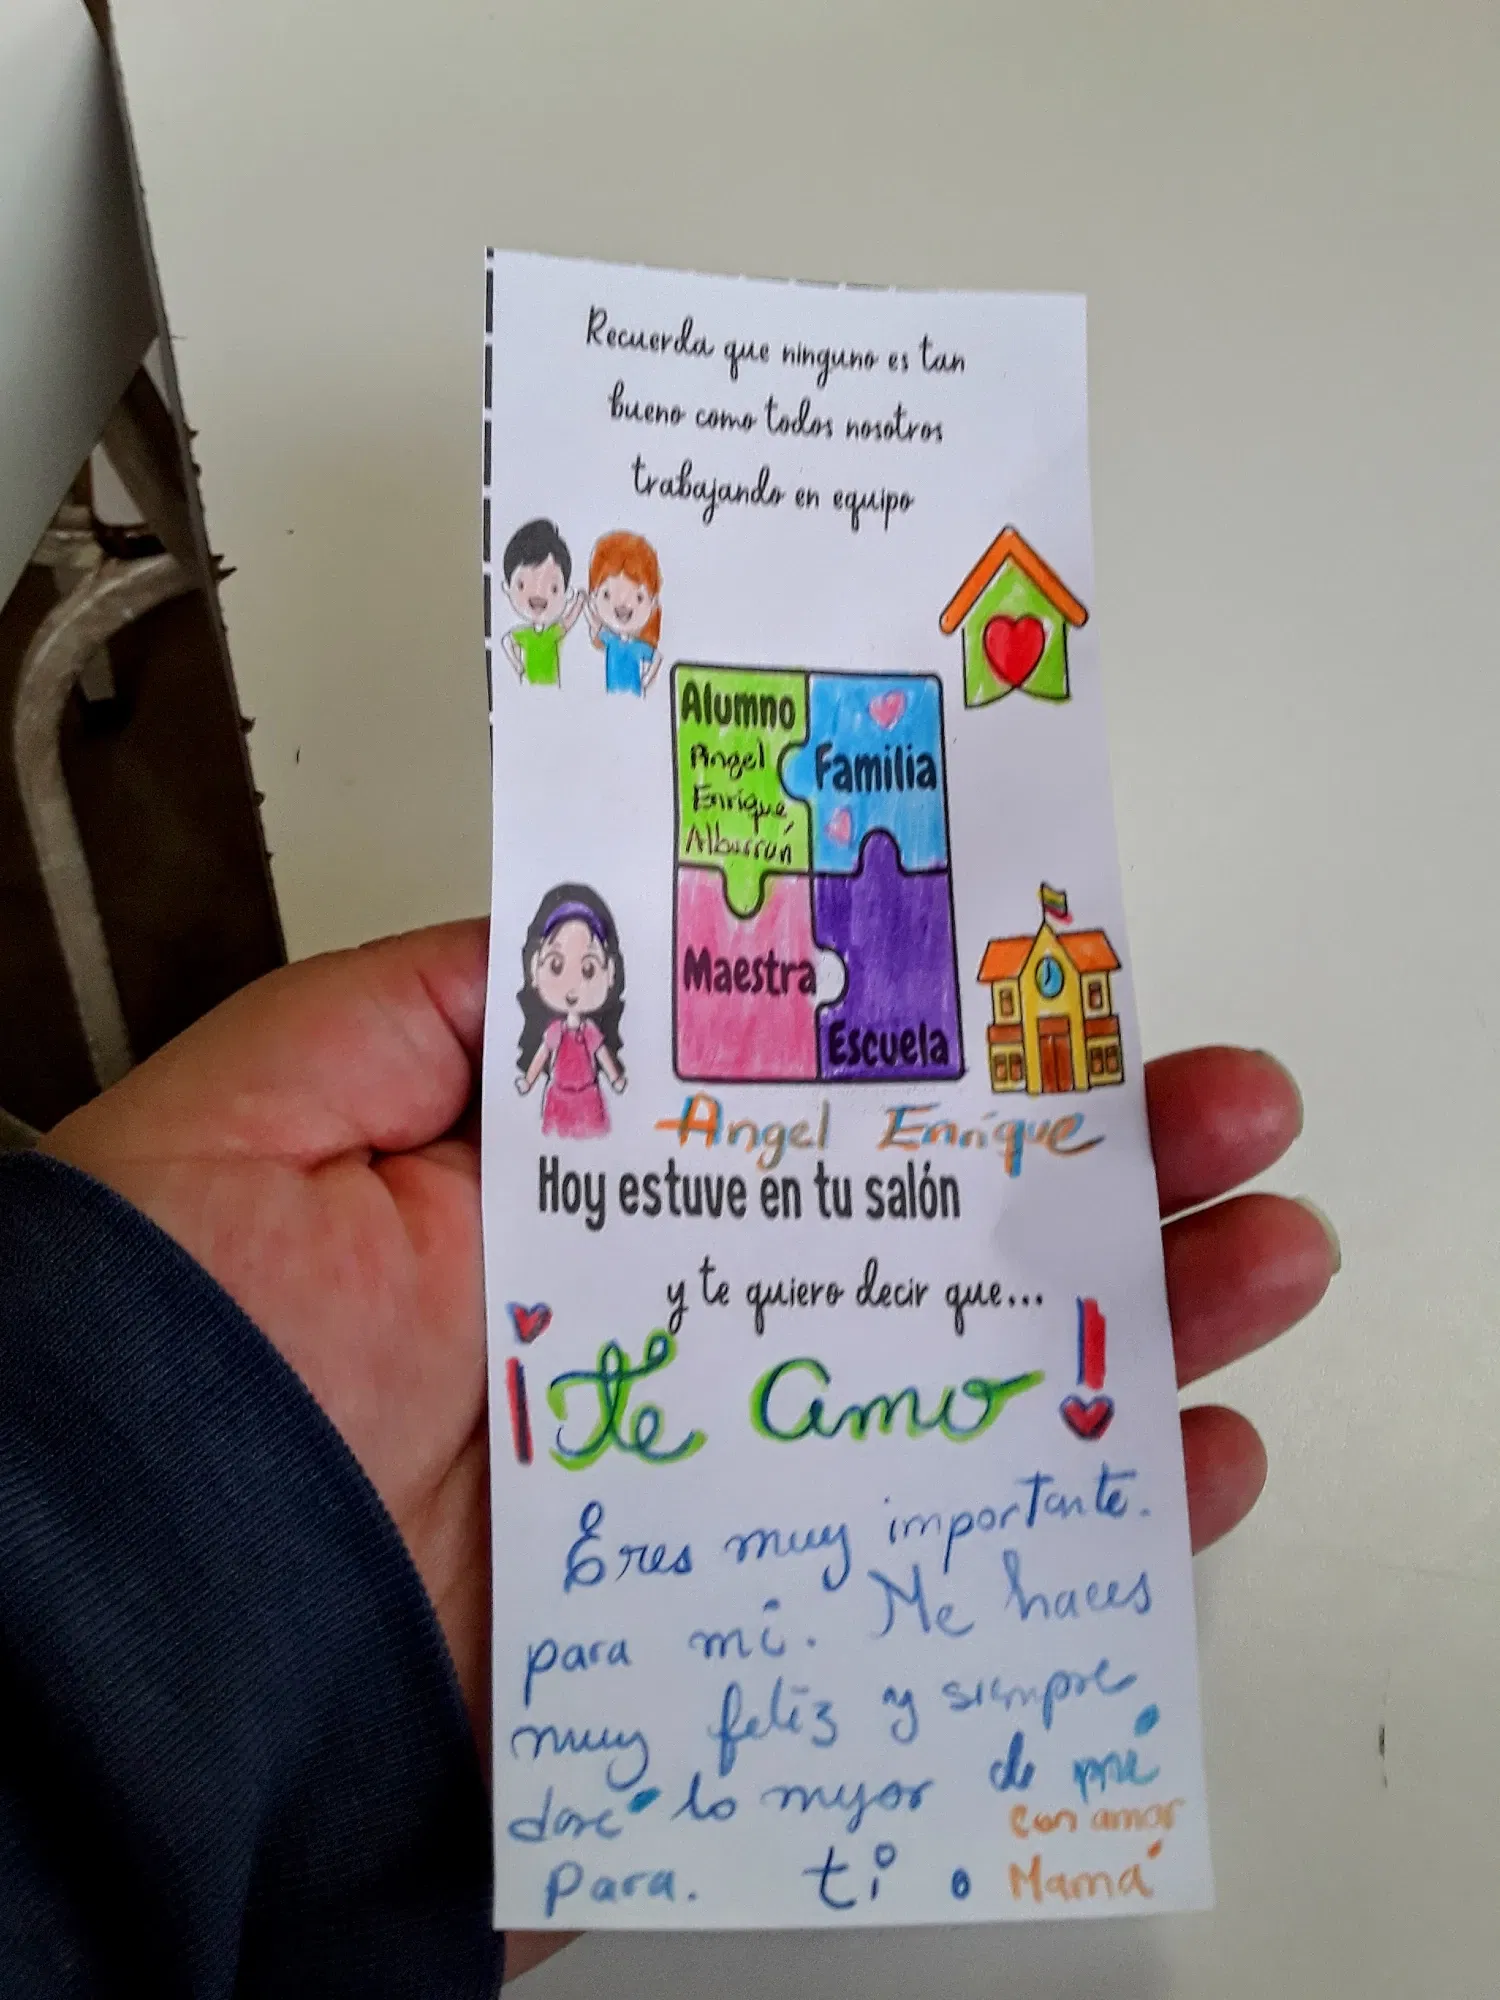 Recuerda que ninguno es tan
bueno como todos nosotros
trabajando en equipo
Alumno
Angel
Enrique
Albarrán
Familia
Maestra
Escuela
Angel Enrique
Hoy estuve en tu salón
y te quiero decir que...
¡Te amo!
Eres muy importante.
para mí. Me haces
muy feliz y siempre
daré lo mejor de mí
Para. ti.
con amor
Mamá